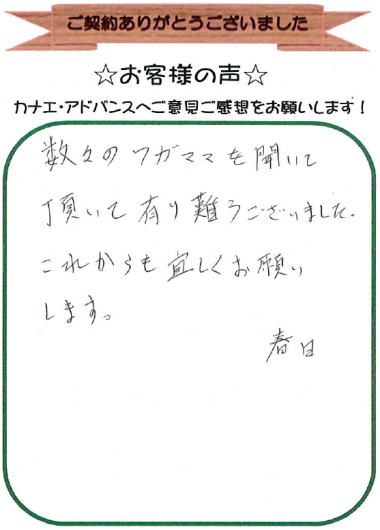 ご契約ありがとうございました
☆お客様の声☆
カナエ・アドバンスへご意見ご感想をお願いします！
数々のワガママを聞いて
頂いて有り難うございました。
これからも宜しくお願い
します。
春日